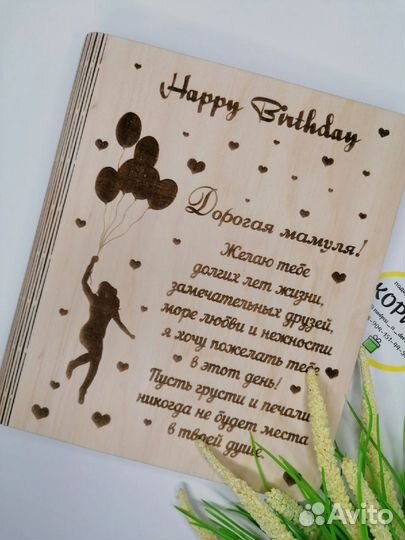 Happy Birthday
Дорогая мамуля!
Желаю тебе
долгих лет жизни,
замечательных друзей,
море любви и нежности
я хочу пожелать тебе
в этот день!
Пусть грусти и печали
никогда не будет места
в твоей душе
КОРИ
Avito